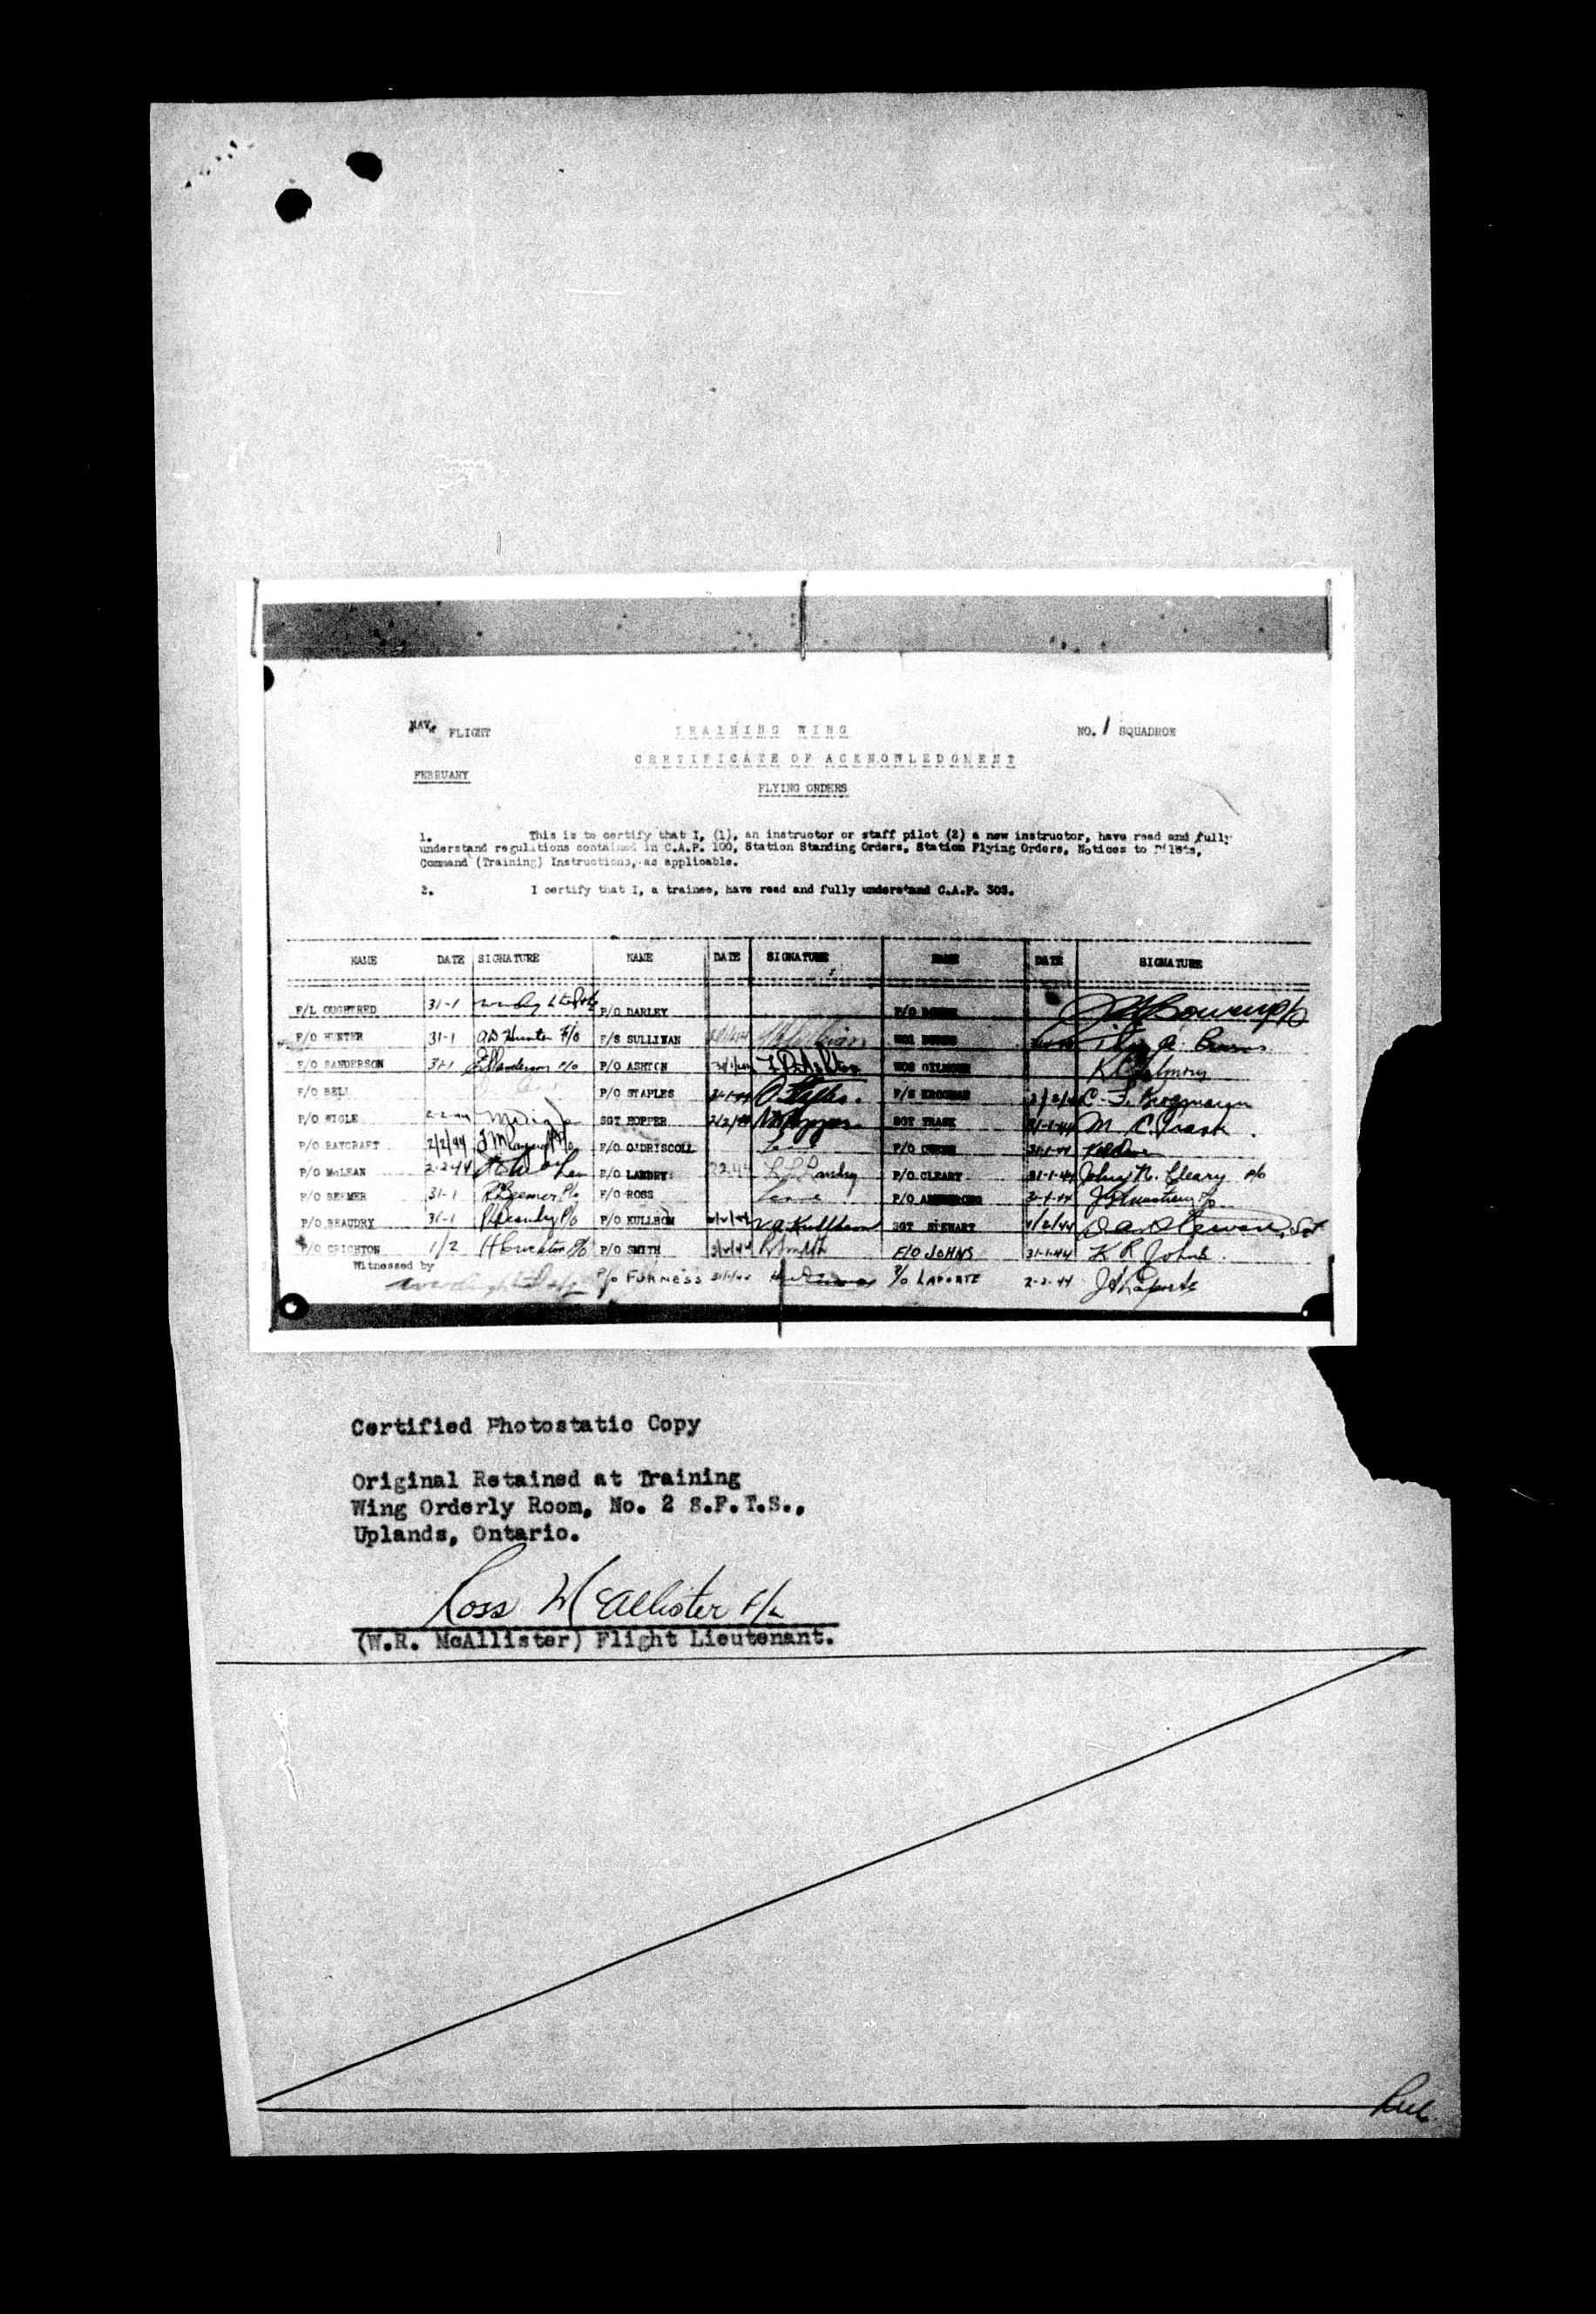 NAV. FLIGHT TRAINING WING NO. 1 SQUADRON
CERTIFICATE OF ACKNOWLEDGMENT
FEBRUARY
FLYING ORDERS
1. This is to certify that I, (1), an instructor or staff pilot (2) a new instructor, have read and fully
understand regulations contained in C.A.P. 100, Station Standing Orders, Station Flying Orders, Notices to Pilots,
Command (Training) Instructions, as applicable.
2. I certify that I, a trainee, have read and fully understand C.A.P. 303.
NAME DATE SIGNATURE NAME DATE SIGNATURE NAME DATE SIGNATURE
F/L OUGHTRED 31-1 P/O DARLEY P/O
F/O HUNTER 31-1 A D Hunter F/O F/S SULLIVAN WO1 BURNS Burns
F/O SANDERSON 31-1 Sanderson F/O P/O ASHTON 31/1/44 Ashton WO2 GILMOUR
F/O BELL P/O STAPLES 31-1-44 Staples F/S KROGMAN 2/2/44 C. F. Krogmann
P/O WIGLE 2-2-44 SGT HOPPER 2/2/44 Hopper SGT TRASK 31-1-44 M. C. Trask
P/O RAYCRAFT 2/2/44 P/O O'DRISCOLL P/O OWENS 31-1-44
P/O McLEAN 2-2-44 P/O LANDRY 2 2 44 Landry P/O CLEARY 31-1-44 John N. Cleary P/O
P/O BEEMER 31-1 R Beemer P/o F/O ROSS P/O ARMSTRONG 31-1-44 Armstrong
P/O BEAUDRY 31-1 Beaudry P/o P/O KULLBOM V.A. Kullbom SGT STEWART 1/2/44 Stewart, Sgt
P/O CRICHTON 1/2 H Crichton P/O P/O SMITH Smith F/O JOHNS 31-1-44 K R Johns
Witnessed by
P/O FURNESS 31/1/44 P/O LAPORTE 2-2-44 Laporte
Certified Photostatic Copy
Original Retained at Training
Wing Orderly Room, No. 2 S.F.T.S.,
Uplands, Ontario.
Ross McAllister F/L
(W.R. McAllister) Flight Lieutenant.